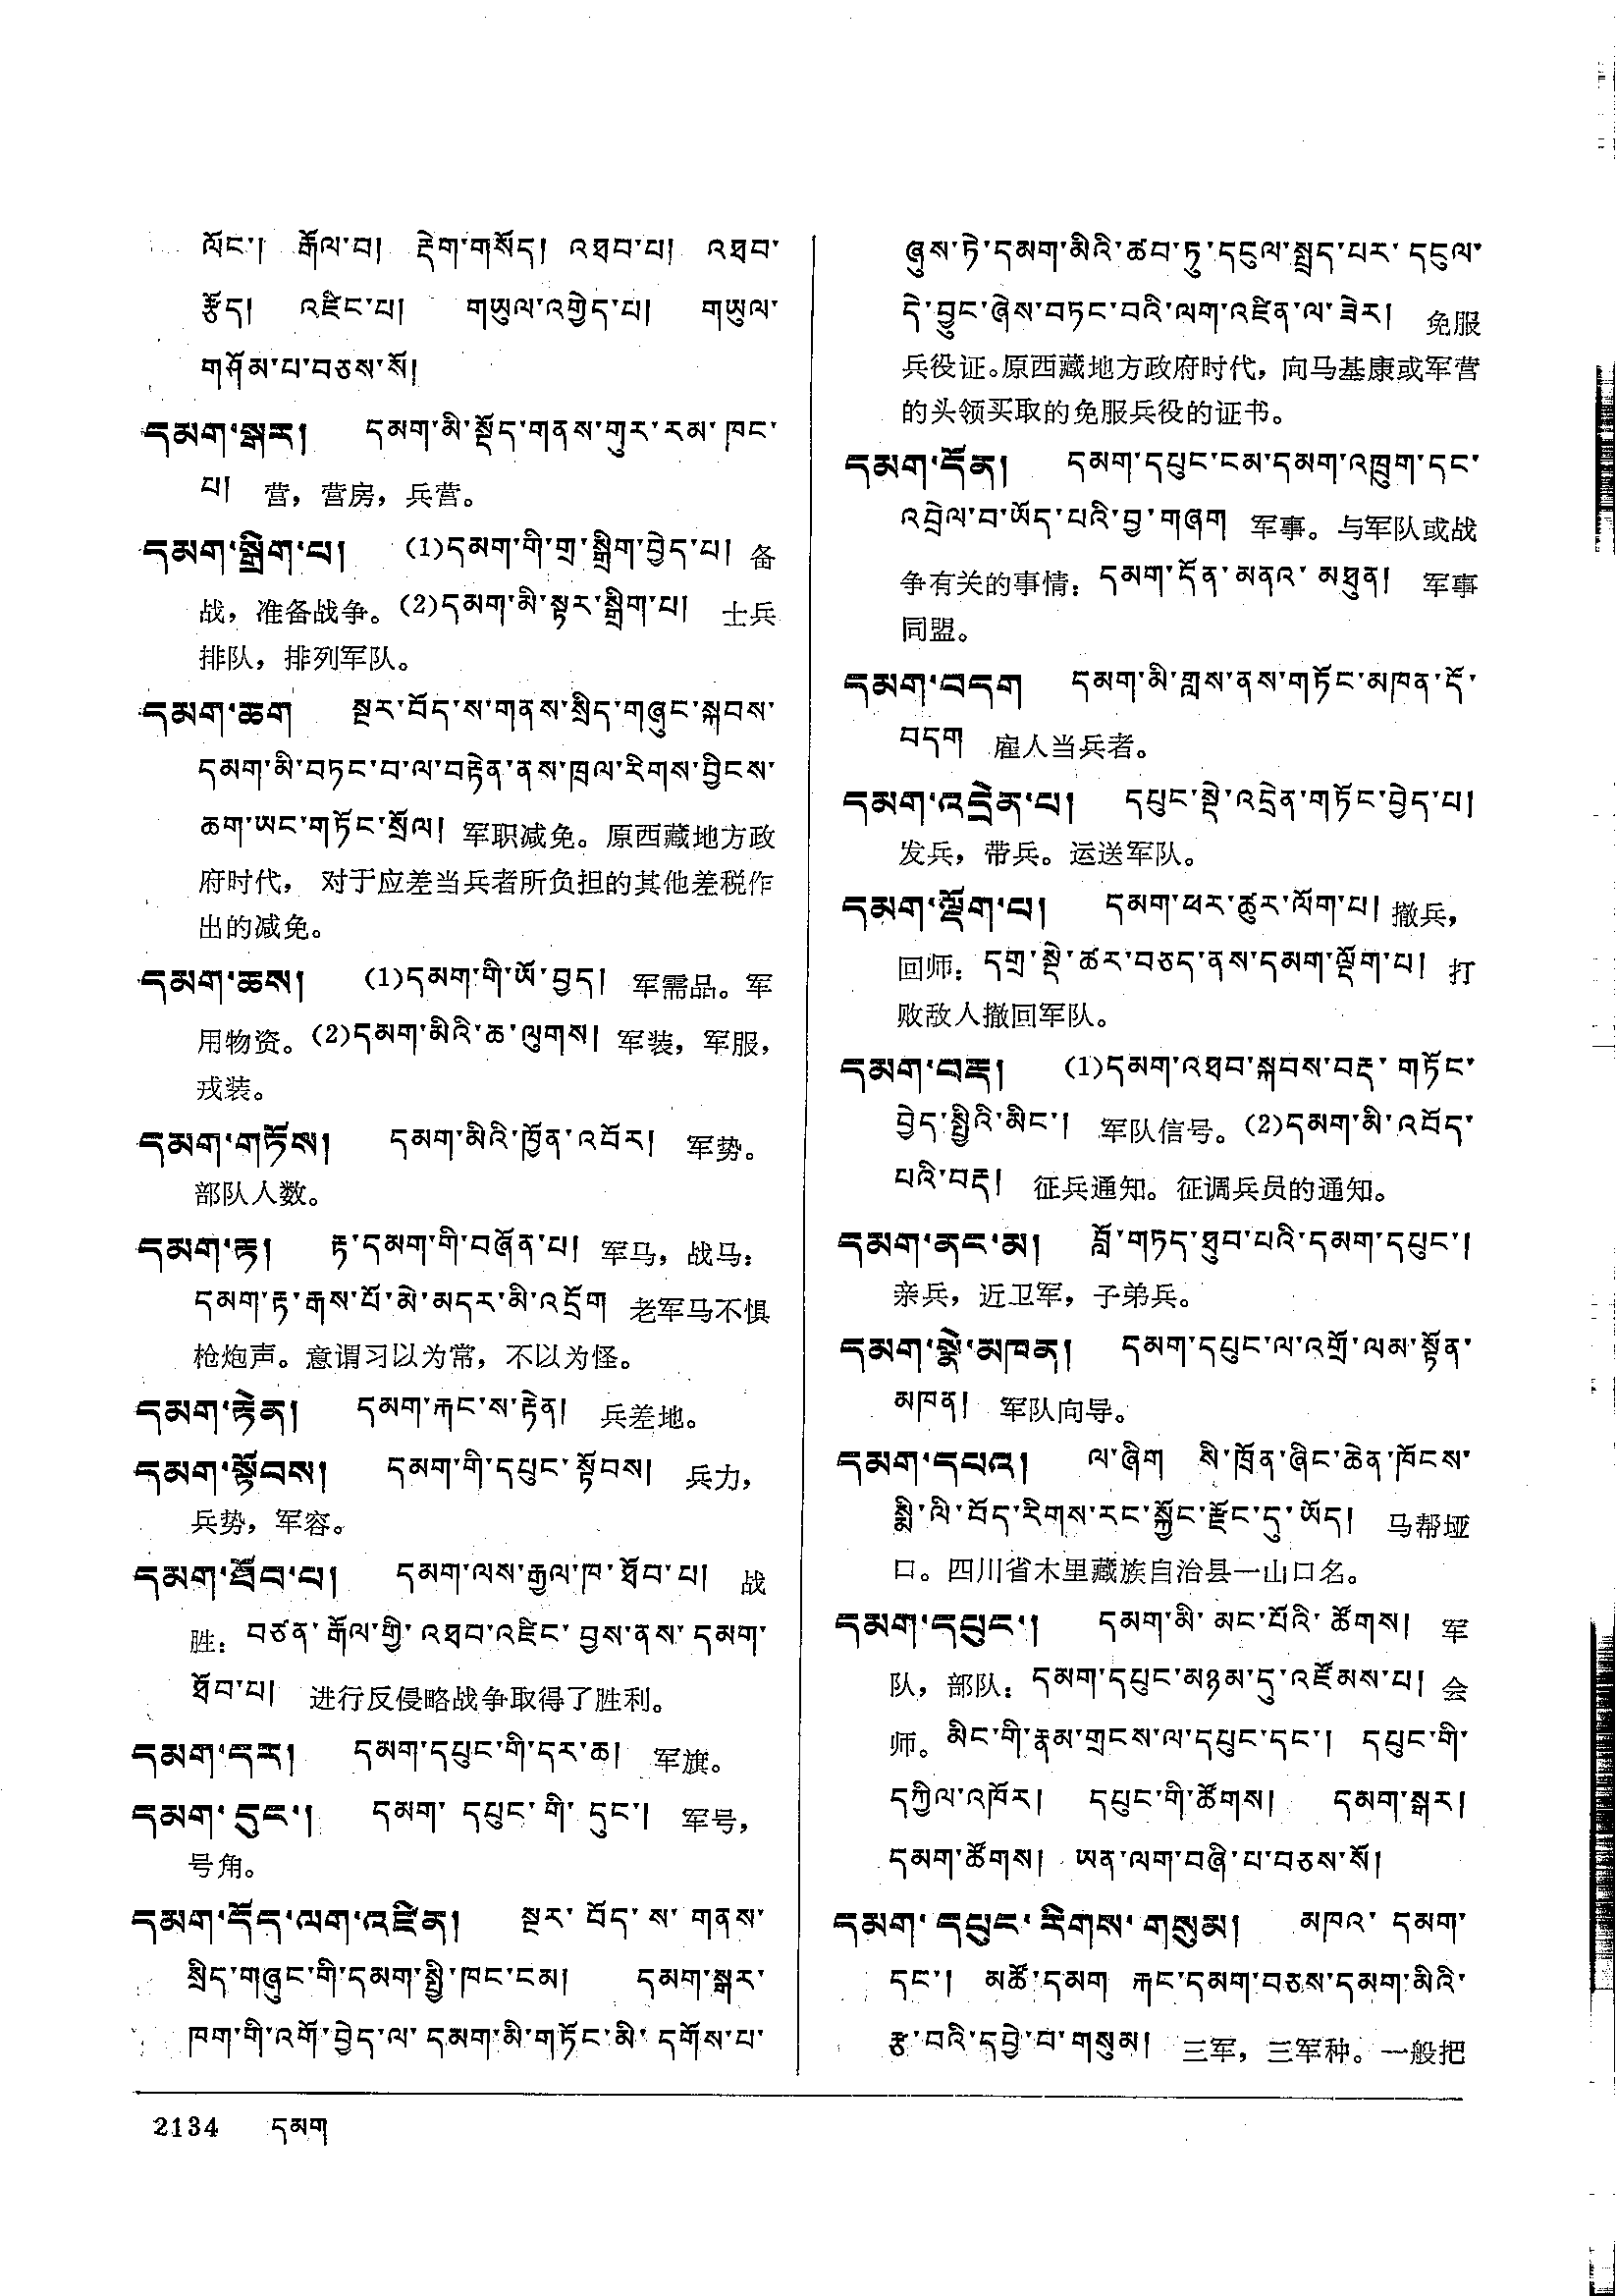 ལོང་། རྒོལ་བ། རྡེག་གསོད། འཐབ་པ། འཐབ་
རྩོད། འཛིང་པ། གཡུལ་འགྱེད་པ། གཡུལ་
གཤོམ་པ་བཅས་སོ།
དམག་སྒར། དམག་མི་སྡོད་གནས་གུར་རམ་ཁང་
པ། 营，营房，兵营。
དམག་སྒྲིག་པ། (1)དམག་གི་གྲ་སྒྲིག་བྱེད་པ། 备
战，准备战争。(2)དམག་མི་སྟར་སྒྲིག་པ། 士兵
排队，排列军队。
དམག་ཆག སྔར་བོད་ས་གནས་སྲིད་གཞུང་སྐབས་
དམག་མི་བཏང་བ་ལ་བརྟེན་ནས་ཁྲལ་རིགས་བྱིངས་
ཆག་ཡང་གཏོང་སྲོལ། 军职减免。原西藏地方政
府时代，对于应差当兵者所负担的其他差税作
出的减免。
དམག་ཆས། (1)དམག་གི་ཡོ་བྱད། 军需品。军
用物资。(2)དམག་མིའི་ཆ་ལུགས། 军装，军服，
戎装。
དམག་གཏོས། དམག་མིའི་ཁྱོན་འབོར། 军势。
部队人数。
དམག་རྟ། རྟ་དམག་གི་བཞོན་པ། 军马，战马：
དམག་རྟ་རྒས་པོ་མེ་མདར་མི་འདྲོག 老军马不惧
枪炮声。意谓习以为常，不以为怪。
དམག་རྟེན། དམག་རྐང་ས་རྟེན། 兵差地。
དམག་སྟོབས། དམག་གི་དཔུང་སྟོབས། 兵力，
兵势，军容。
དམག་ཐོབ་པ། དམག་ལས་རྒྱལ་ཁ་ཐོབ་པ། 战
胜：བཙན་རྒོལ་གྱི་འཐབ་འཛིང་བྱས་ནས་དམག་
ཐོབ་པ། 进行反侵略战争取得了胜利。
དམག་དར། དམག་དཔུང་གི་དར་ཆ། 军旗。
དམག་དུང་། དམག་དཔུང་གི་དུང་། 军号，
号角。
དམག་དོད་ལག་འཛིན། སྔར་བོད་ས་གནས་
སྲིད་གཞུང་གི་དམག་སྤྱི་ཁང་ངམ། དམག་སྒར་
ཁག་གི་འགོ་བྱེད་ལ་དམག་མི་གཏོང་མི་དགོས་པ་
ཞུས་ཏེ་དམག་མིའི་ཚབ་ཏུ་དངུལ་སྤྲད་པར་དངུལ་
དེ་བྱུང་ཞེས་བཏང་བའི་ལག་འཛིན་ལ་ཟེར། 免服
兵役证。原西藏地方政府时代，向马基康或军营
的头领买取的免服兵役的证书。
དམག་དོན། དམག་དཔུང་ངམ་དམག་འཁྲུག་དང་
འབྲེལ་བ་ཡོད་པའི་བྱ་གཞག 军事。与军队或战
争有关的事情：དམག་དོན་མནའ་མཐུན། 军事
同盟。
དམག་བདག དམག་མི་གླས་ནས་གཏོང་མཁན་དོ་
བདག 雇人当兵者。
དམག་འདྲེན་པ། དཔུང་སྡེ་འདྲེན་གཏོང་བྱེད་པ།
发兵，带兵。运送军队。
དམག་ལྡོག་པ། དམག་ཕར་ཚུར་ལོག་པ། 撤兵，
回师：དགྲ་སྡེ་ཚར་བཅད་ནས་དམག་ལྡོག་པ། 打
败敌人撤回军队。
དམག་བརྡ། (1)དམག་འཐབ་སྐབས་བརྡ་གཏོང་
བྱེད་སྤྱིའི་མིང་། 军队信号。(2)དམག་མི་འབོད་
པའི་བརྡ། 征兵通知。征调兵员的通知。
དམག་ནང་མ། བློ་གཏད་ཐུབ་པའི་དམག་དཔུང་།
亲兵，近卫军，子弟兵。
དམག་སྣེ་མཁན། དམག་དཔུང་ལ་འགྲོ་ལམ་སྟོན་
མཁན། 军队向导。
དམག་དཔའ། ལ་ཞིག སི་ཁྲོན་ཞིང་ཆེན་ཁོངས་
སྨི་ལི་བོད་རིགས་རང་སྐྱོང་རྫོང་དུ་ཡོད། 马帮垭
口。四川省木里藏族自治县一山口名。
དམག་དཔུང་། དམག་མི་མང་པོའི་ཚོགས། 军
队，部队：དམག་དཔུང་མཉམ་དུ་འཛོམས་པ། 会
师。མིང་གི་རྣམ་གྲངས་ལ་དཔུང་དང་། དཔུང་གི་
དཀྱིལ་འཁོར། དཔུང་གི་ཚོགས། དམག་སྒར།
དམག་ཚོགས། ཡན་ལག་བཞི་པ་བཅས་སོ།
དམག་དཔུང་རིགས་གསུམ། མཁའ་དམག་
དང་། མཚོ་དམག རྐང་དམག་བཅས་དམག་མིའི་
རྩ་བའི་དབྱེ་བ་གསུམ། 三军，三军种。一般把
2134 དམག